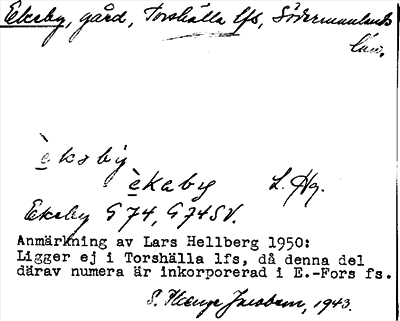 Eksby, gård, Torshälla lfs, Södermanlands
län.
èksby
èkaby L. Hg.
Eksby G 74, G 74 SV.
Anmärkning av Lars Hellberg 1950:
Ligger ej i Torshälla lfs, då denna del
därav numera är inkorporerad i E.-Fors fs.
S. Jacobsen, 1943.